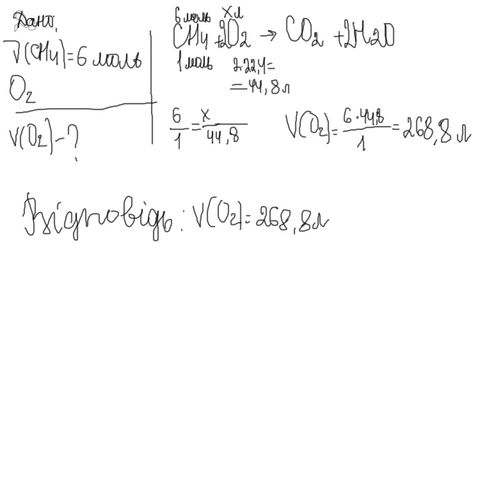 Дано:
ν(CH4)=6 моль
O2
V(O2)-?
6 моль x л
CH4+2O2 → CO2 +2H2O
1 моль 2·22,4=
=44,8 л
6/1 = x/44,8
V(O2)= 6·44,8/1 =268,8 л
Відповідь: V(O2)=268,8л